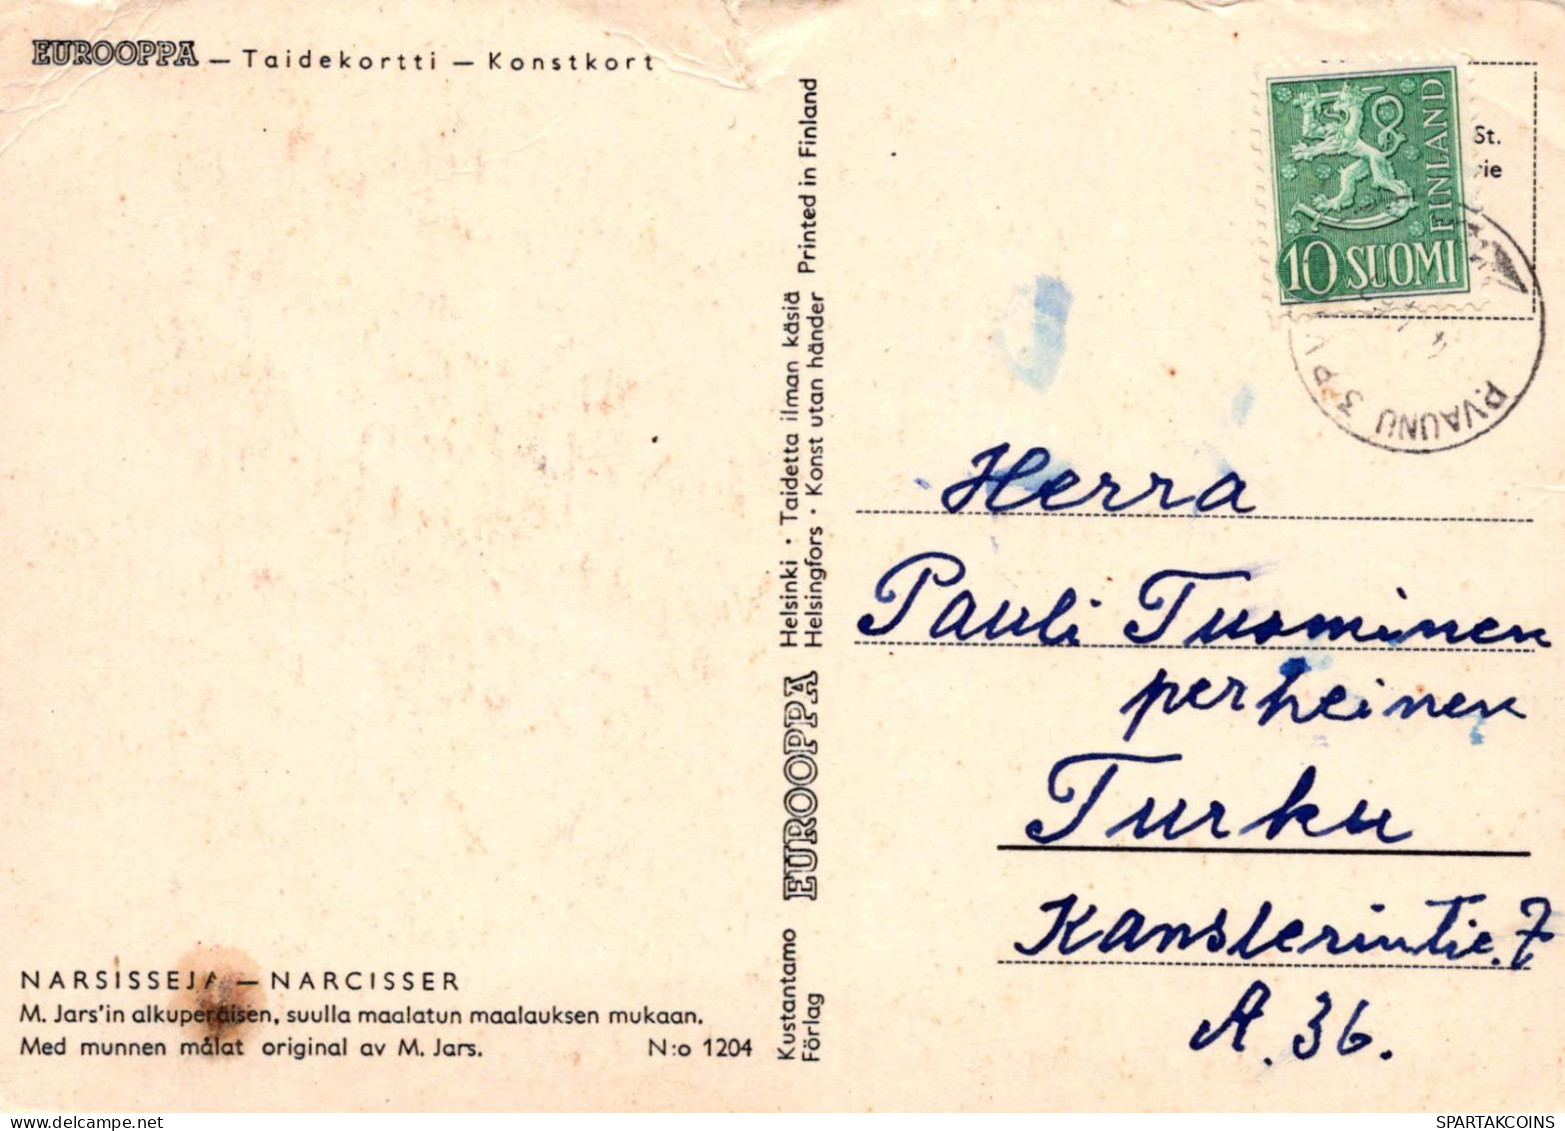 EUROOPPA — Taidekortti — Konstkort
St.
rie
FINLAND
10 SUOMI
P.VAUNU 3 P
Herra
Pauli Tusminen
perheinen
Turku
Kanslerintie. 7
A. 36.
Kustantamo EUROOPPA Helsinki · Taidetta ilman käsiä Printed in Finland
Förlag Helsingfors · Konst utan händer
NARSISSEJA — NARCISSER
M. Jars'in alkuperäisen, suulla maalatun maalauksen mukaan.
Med munnen målat original av M. Jars. N:o 1204
SPARTAKCOINS